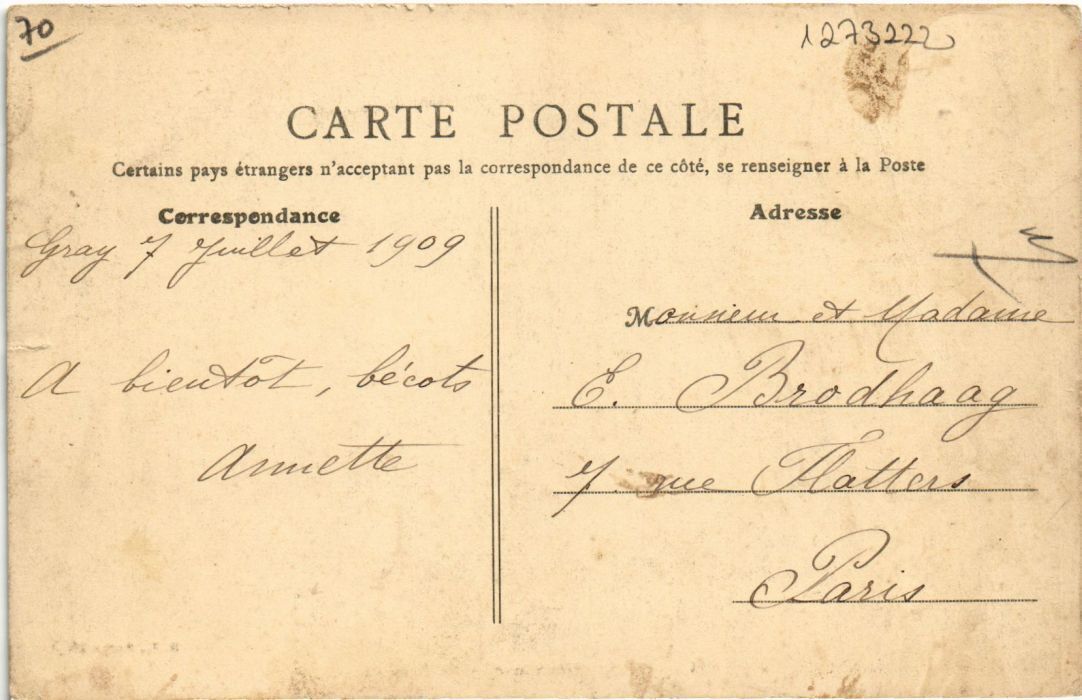 70
1273222
CARTE POSTALE
Certains pays étrangers n'acceptant pas la correspondance de ce côté, se renseigner à la Poste
Correspondance
Gray 7 Juillet 1909
A bientôt, bécots
Annette
Adresse
Monsieur et Madame
E. Brodhaag
7. rue Flatters
Paris